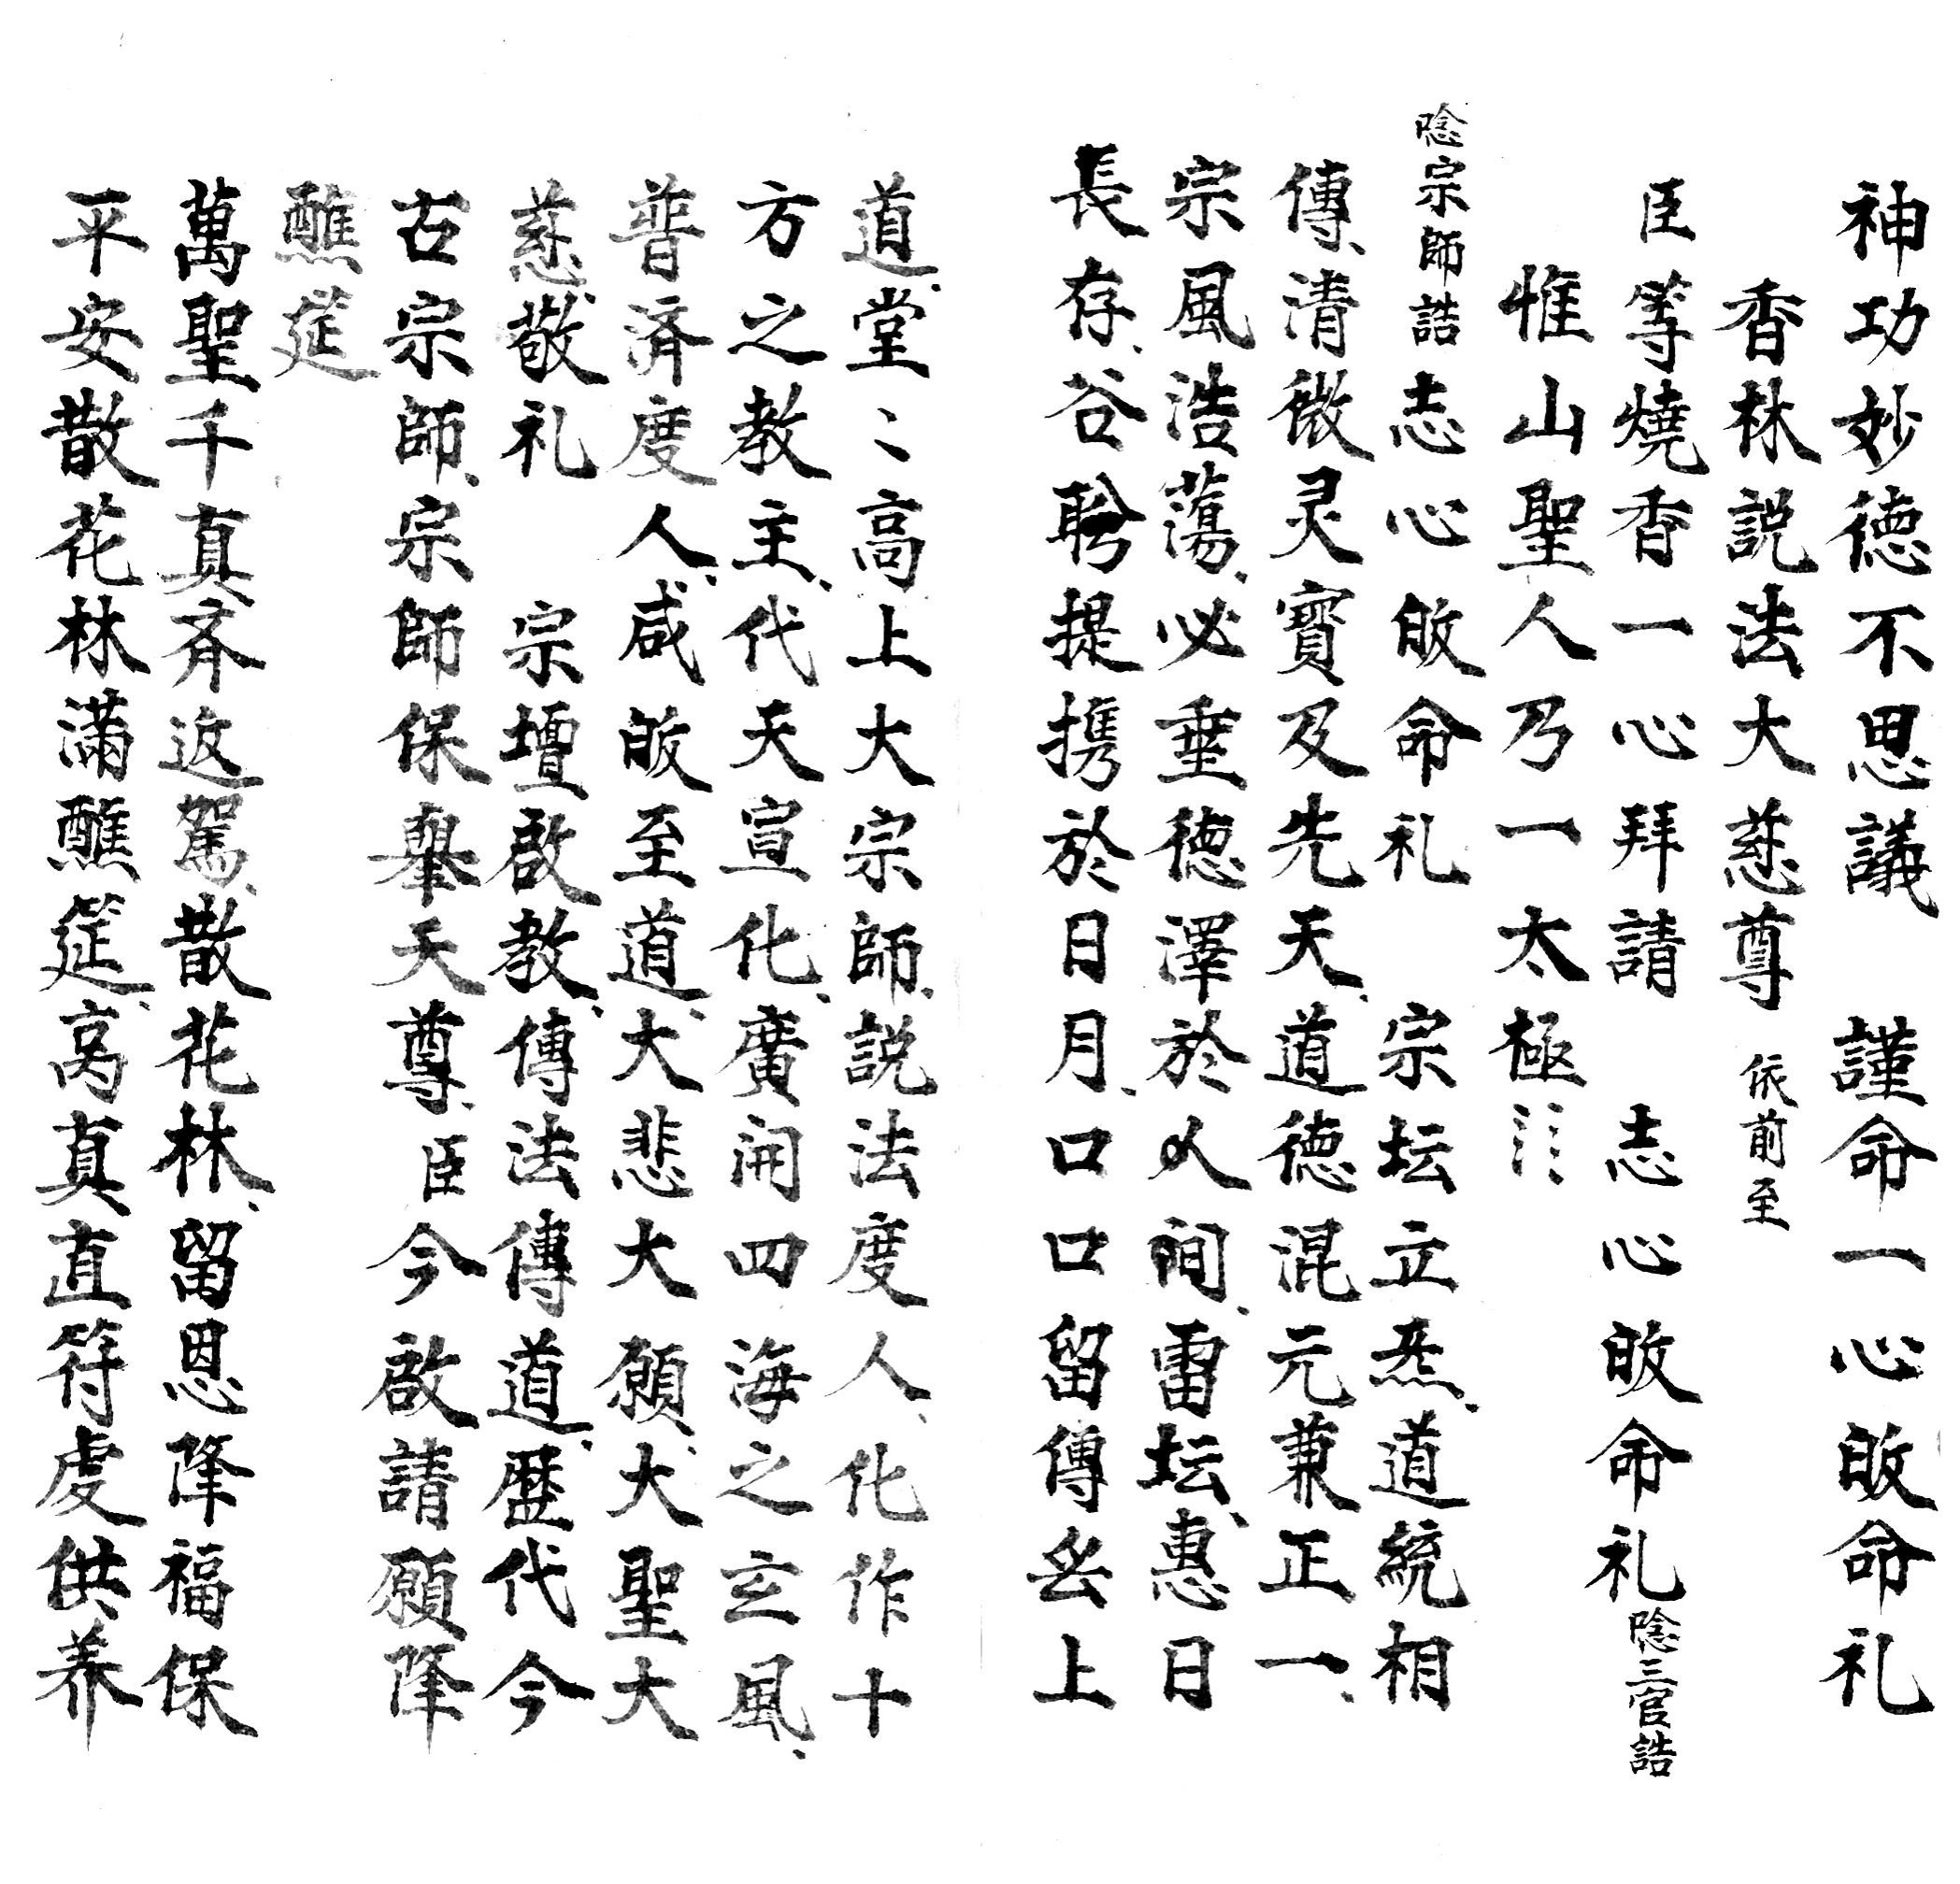 神功妙德不思議　謹命一心皈命礼
香林説法大慈尊　依前至
臣等燒香一心拜請　志心皈命礼唸三官誥
惟山聖人乃一太極
唸宗師誥志心皈命礼　宗坛立炁、道統相
傳、清微灵寳及先天、道德混元兼正一、
宗風浩蕩、必垂德澤於人间、雷坛、惠日
長存、谷聆提携於日月、口口留傳
上
道、堂〻高上大宗師、説法度人、化作十
方之教主、代天宣化、廣開四海之玄風、
普済度人、咸皈至道、大悲大願、大聖大
慈、敬礼　宗壇啟教、傳法傳道、歴代今
古宗師、宗師保舉天尊、臣今啟請願降
醮筵
萬聖千真斉返駕、散花林、留恩降福保
平安散花林滿醮筵、髙真直符虔供养